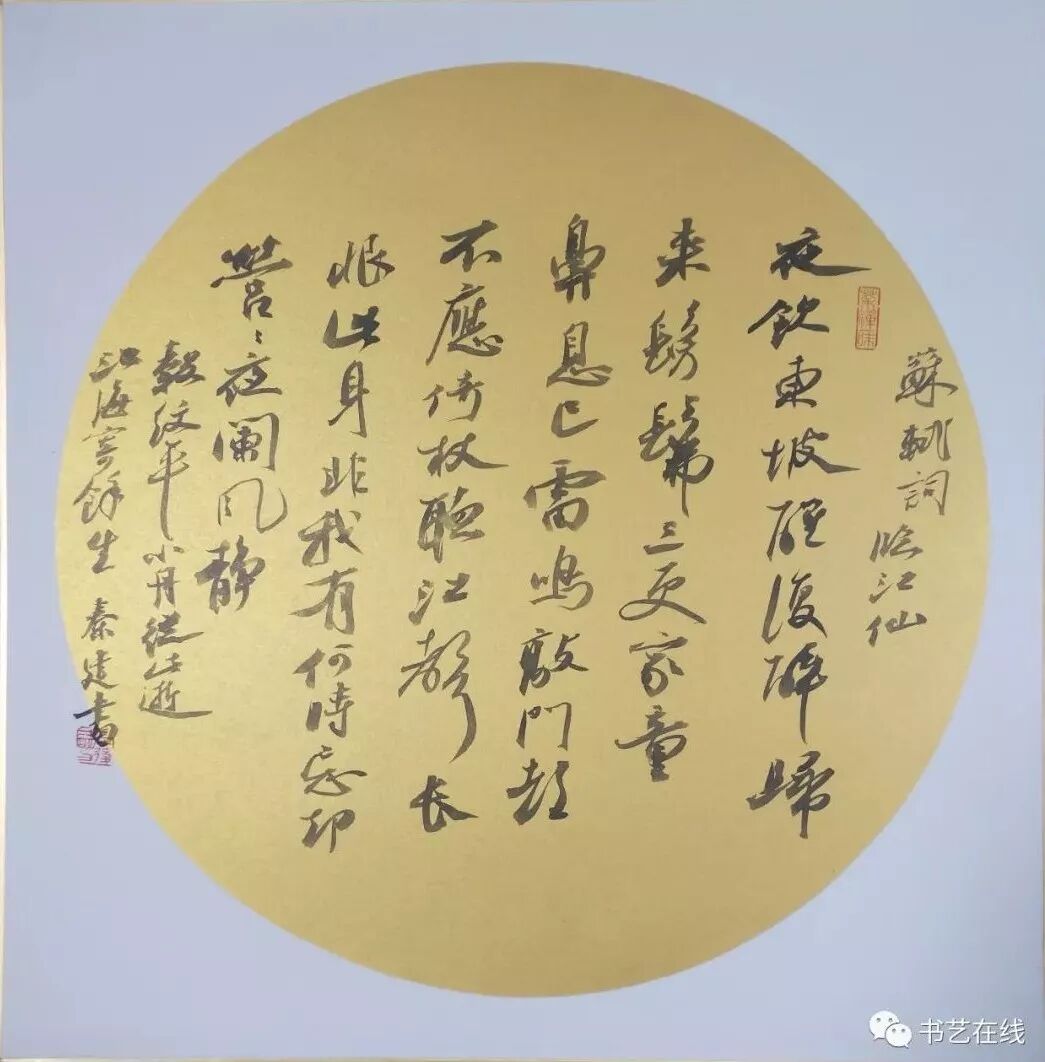 蘇軾詞
臨江仙
夜飲東坡醒復醉歸
来髣髴三更家童
鼻息已雷鳴敲門都
不應倚杖聽江聲長
恨此身非我有何時忘却
營〻夜闌風静
縠紋平小舟從此逝
江海寄餘生 秦建書
书艺在线